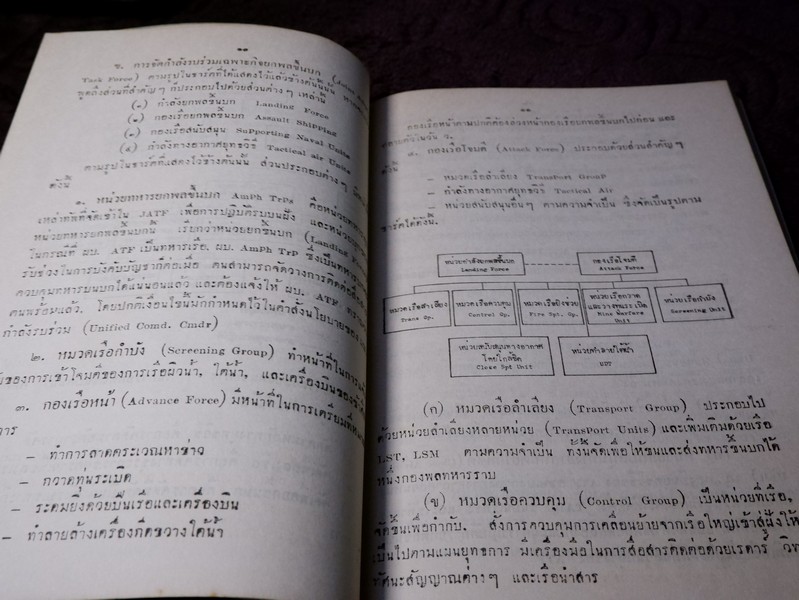 ข. การจัดกำลังรบร่วมเฉพาะกิจยกพลขึ้นบก (Joint
Task Force) ตามรูปในชาร์ตที่ได้แสดงไว้แล้วข้างต้นนั้น
พูดถึงส่วนที่สำคัญ ๆ ก็ประกอบไปด้วยส่วนต่าง ๆ เหล่านี้
(๑) กำลังยกพลขึ้นบก Landing Force
(๒) กองเรือยกพลขึ้นบก Assault Shipping
(๓) กองเรือสนับสนุน Supporting Naval Units
(๔) กำลังทางอากาศยุทธวิธี Tactical air Units
ตามรูปในชาร์ตที่แสดงไว้ข้างต้นนั้น ส่วนประกอบต่าง ๆ
ดังนี้
๑. หน่วยทหารยกพลขึ้นบก AmPh TrPs คือหน่วยทหาร
เหล่าทัพที่จัดเข้าใน JATF เพื่อการปฏิบัติรบบนฝั่ง และหน่วย
หน่วยทหารยกพลขึ้นบกนี้ เรียกว่าหน่วยยกขึ้นบก (Landing
ในกรณีที่ ผบ. ATF เป็นทหารเรือ, ผบ. AmPh TrP ซึ่งเป็นทหาร
รับช่วงในการบังคับบัญชาก็ต่อเมื่อ ตนสามารถจัดวางการติดต่อ
ควบคุมทหารบนบกได้แน่นอนแล้ว และต้องแจ้งให้ ผบ. ATF
ตนพร้อมแล้ว, โดยปกติเงื่อนไขนี้มักกำหนดไว้ในคำสั่งนโยบายของ
กำลังรบร่วม (Unified Comd. Cmdr)
๒. หมวดเรือกำบัง (Screening Group) ทำหน้าที่ในการ
ของการเข้าโจมตีของการเรือผิวน้ำ, ใต้น้ำ, และเครื่องบินของข้าศึก
๓. กองเรือหน้า (Advance Force) มีหน้าที่ในการเตรียม
การ
– ทำการลาดตระเวณหาข่าว
– กวาดทุ่นระเบิด
– ระดมยิงด้วยปืนเรือและเครื่องบิน
– ทำลายล้างเครื่องกีดขวางใต้น้ำ
กองเรือหน้าตามปกติต้องล่วงหน้ากองเรือยกพลขึ้นบกไปก่อน และ
๔. กองเรือโจมตี (Attack Force) ประกอบด้วยส่วนสำคัญ ๆ
ดังนี้
– หมวดเรือลำเลียง Transport Group
– กำลังทางอากาศยุทธวิธี Tactical Air
– หน่วยสนับสนุนอื่น ๆ ตามความจำเป็น ซึ่งจัดเป็นรูปตาม
ชาร์ตได้ดังนี้.
หน่วยกำลังยกพลขึ้นบก
Landing Force
กองเรือโจมตี
Attack Force
หมวดเรือลำเลียง
Trans Gp.
หมวดเรือควบคุม
Control Gp.
หมวดเรือยิงช่วย
Fire Spt. Gp.
หมวดเรือกวาด
และวางทุ่นระเบิด
Mine Warfare
Unit
หมวดเรือกำบัง
Screening Unit
หน่วยสนับสนุนทางอากาศ
โดยใกล้ชิด
Close Spt Unit
หน่วยทำลายใต้น้ำ
UDT
(ก) หมวดเรือลำเลียง (Transport Group) ประกอบไป
ด้วยหน่วยลำเลียงหลายหน่วย (TransPort Units) และเพิ่มเติมด้วยเรือ
LST, LSM ตามความจำเป็น ทั้งนี้จัดเพื่อให้ขนและส่งทหารขึ้นบกได้
หนึ่งกองพลทหารราบ
(ข) หมวดเรือควบคุม (Control Group) เป็นหน่วยที่เรือ,
จัดขึ้นเพื่อกำกับ. สั่งการควบคุมการเคลื่อนย้ายจากเรือใหญ่เข้าสู่ฝั่งให้
เป็นไปตามแผนยุทธการ มีเครื่องมือในการสื่อสารติดต่อด้วยเรดาร์
ทัศนะสัญญาณต่าง ๆ และเรือนำสาร